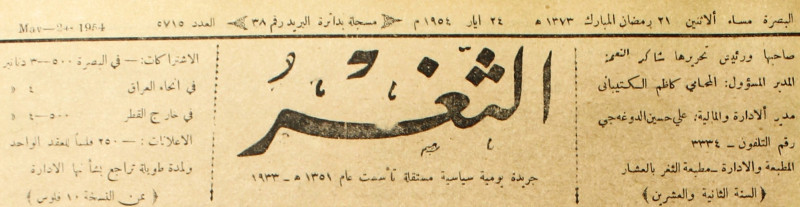 البصرة مساء الاثنين ٢١ رمضان المبارك ١٣٧٣ هـ ٢٤ ايار ١٩٥٤ م مسجلة بدائرة البريد رقم ٣٨ العدد ٥٧١٥ Mar—24—1954
صاحبها ورئيس تحريرها شاكر النعمة
المدير المسؤول: المحامي كاظم الكتيباني
مدير الادارة والمالية: علي حسين الدوغه جي
رقم التلفون - ٣٣٣٤
المطبعة والادارة - مطبعة الثغر بالعشار
(السنة الثانية والعشرين)
الثغر
جريدة يومية سياسية مستقلة تأسست عام ١٣٥١ هـ - ١٩٣٣
الاشتراكات: - في البصرة ٥٠٠-٣ دنانير
في انحاء العراق ٤ »
في خارج القطر ٥٠٠-٤ »
الاعلانات: - ٢٥٠ فلساً للعقد الواحد
ولمدة طويلة تراجع بشأنها الادارة
(ثمن النسخة ١٠ فلوس)